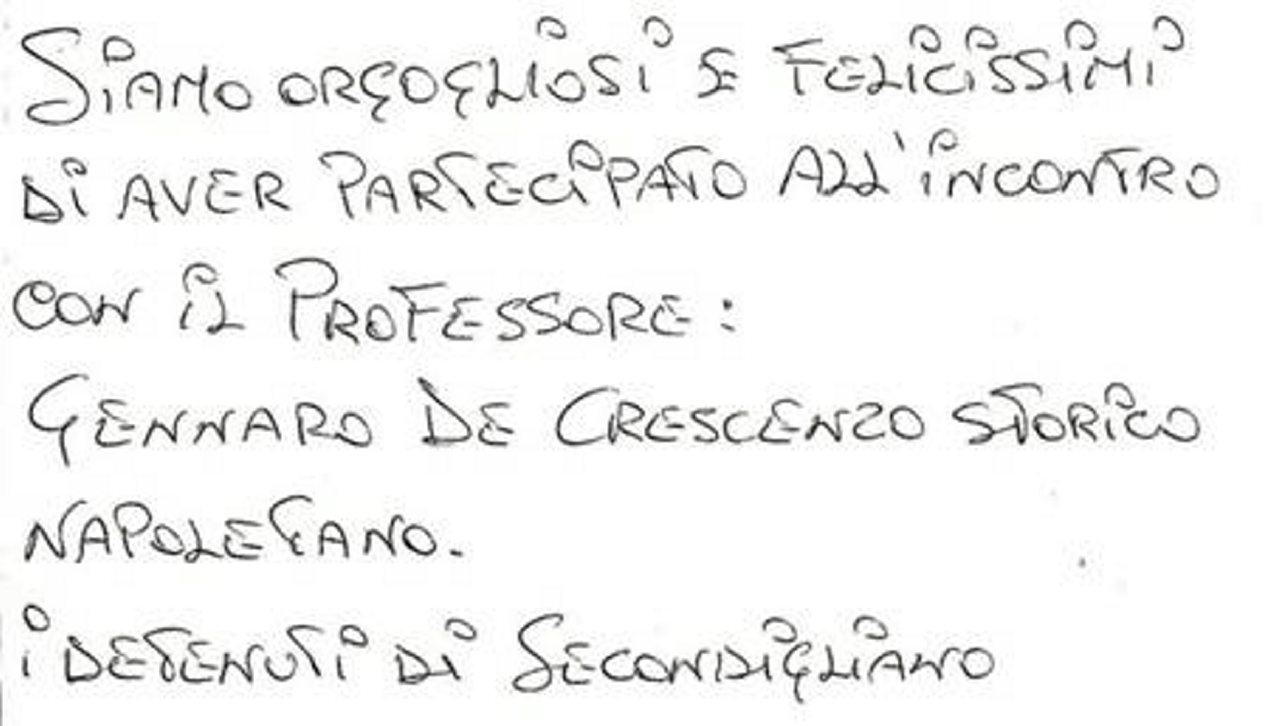 Siamo orgogliosi e felicissimi
di aver partecipato all'incontro
con il Professore:
Gennaro De Crescenzo storico
napoletano.
i detenuti di Secondigliano